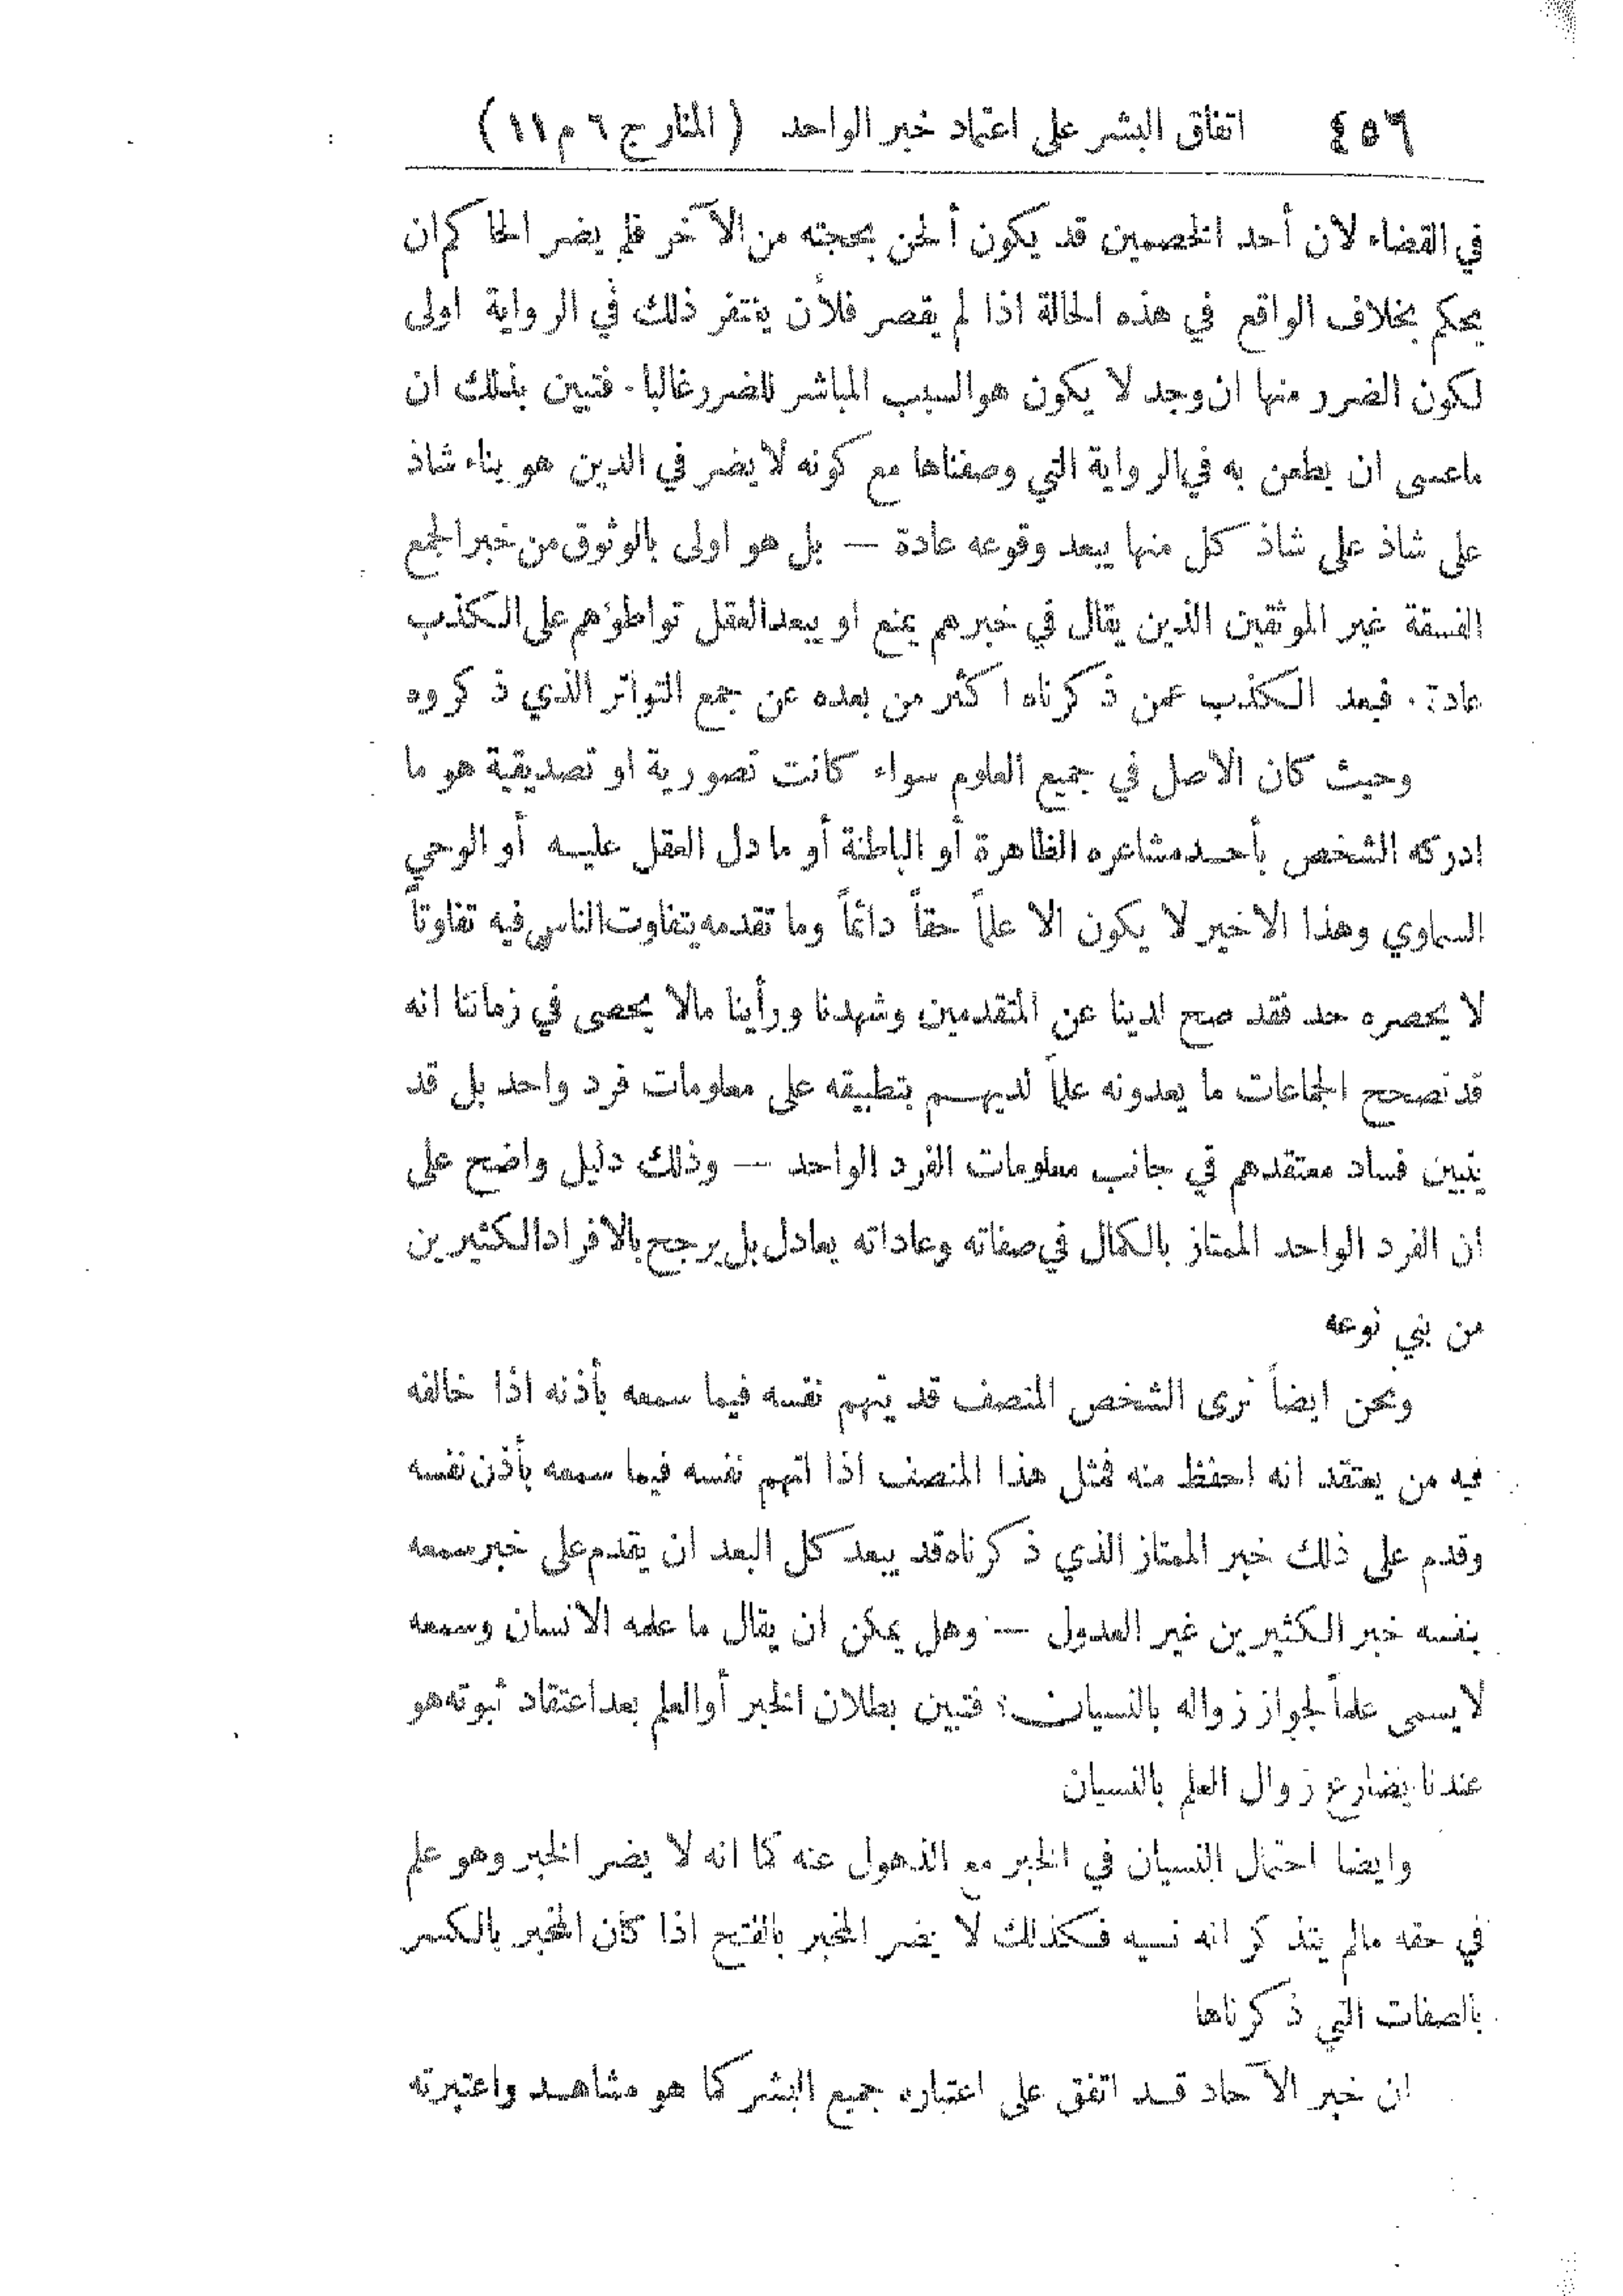 ٤٥٦ اتفاق البشر على اعتماد خبر الواحد ( المنار ج ٦ م ١١ )
في القضاء لان أحد الخصمين قد يكون ألحن بحجته من الآخر فلم يضر الحاكم ان
يحكم بخلاف الواقع في هذه الحالة اذا لم يقصر فلأن يغتفر ذلك في الرواية اولى
لكون الضرر منها ان وجد لا يكون هو السبب المباشر للضرر غالبا . فتبين بذلك ان
ماعسى ان يطعن به في الرواية التي وصفناها مع كونه لا يضر في الدين هو بناء شاذ
على شاذ على شاذ كل منها يبعد وقوعه عادة — بل هو اولى بالوثوق من خبر الجمع
الفسقة غير الموثقين الذين يقال في خبرهم يمنع او يبعد العقل تواطؤهم على الكذب
عادة . فبعد الكذب عمن ذكرناه اكثر من بعده عن جمع التواتر الذي ذكروه
وحيث كان الاصل في جميع العلوم سواء كانت تصورية او تصديقية هو ما
ادركه الشخص بأحد مشاعره الظاهرة أو الباطنة أو ما دل العقل عليه أو الوحي
السماوي وهذا الاخير لا يكون الا علماً حقاً دائماً وما تقدمه يتفاوت الناس فيه تفاوتاً
لا يحصره حد فقد صح لدينا عن المتقدمين وشهدنا ورأينا مالا يحصى في زماننا انه
قد تصحح الجماعات ما يعدونه علماً لديهم بتطبيقه على معلومات فرد واحد بل قد
يتبين فساد معتقدهم في جانب معلومات الفرد الواحد — وذلك دليل واضح على
ان الفرد الواحد الممتاز بالكمال في صفاته وعاداته يعادل بل يرجح بالافراد الكثيرين
من بني نوعه
ونحن ايضاً نرى الشخص المنصف قد يتهم نفسه فيما سمعه بأذنه اذا خالفه
فيه من يعتقد انه احفظ منه فمثل هذا المنصف اذا اتهم نفسه فيما سمعه بأذن نفسه
وقدم على ذلك خبر الممتاز الذي ذكرناه قد يبعد كل البعد ان يقدم على خبر سمعه
بنفسه خبر الكثيرين غير العدول — وهل يمكن ان يقال ما علمه الانسان وسمعه
لا يسمى علماً لجواز زواله بالنسيان ؟ فتبين بطلان الخبر أو العلم بعد اعتقاد ثبوته هو
عندنا يضارع زوال العلم بالنسيان
وايضا احتمال النسيان في الخبر مع الذهول عنه كما انه لا يضر الخبر وهو علم
في حقه مالم يتذكر انه نسيه فكذلك لا يضر المخبر بالفتح اذا كان المخبر بالكسر
بالصفات التي ذكرناها
ان خبر الآحاد قد اتفق على اعتباره جميع البشر كما هو مشاهد واعتبرته